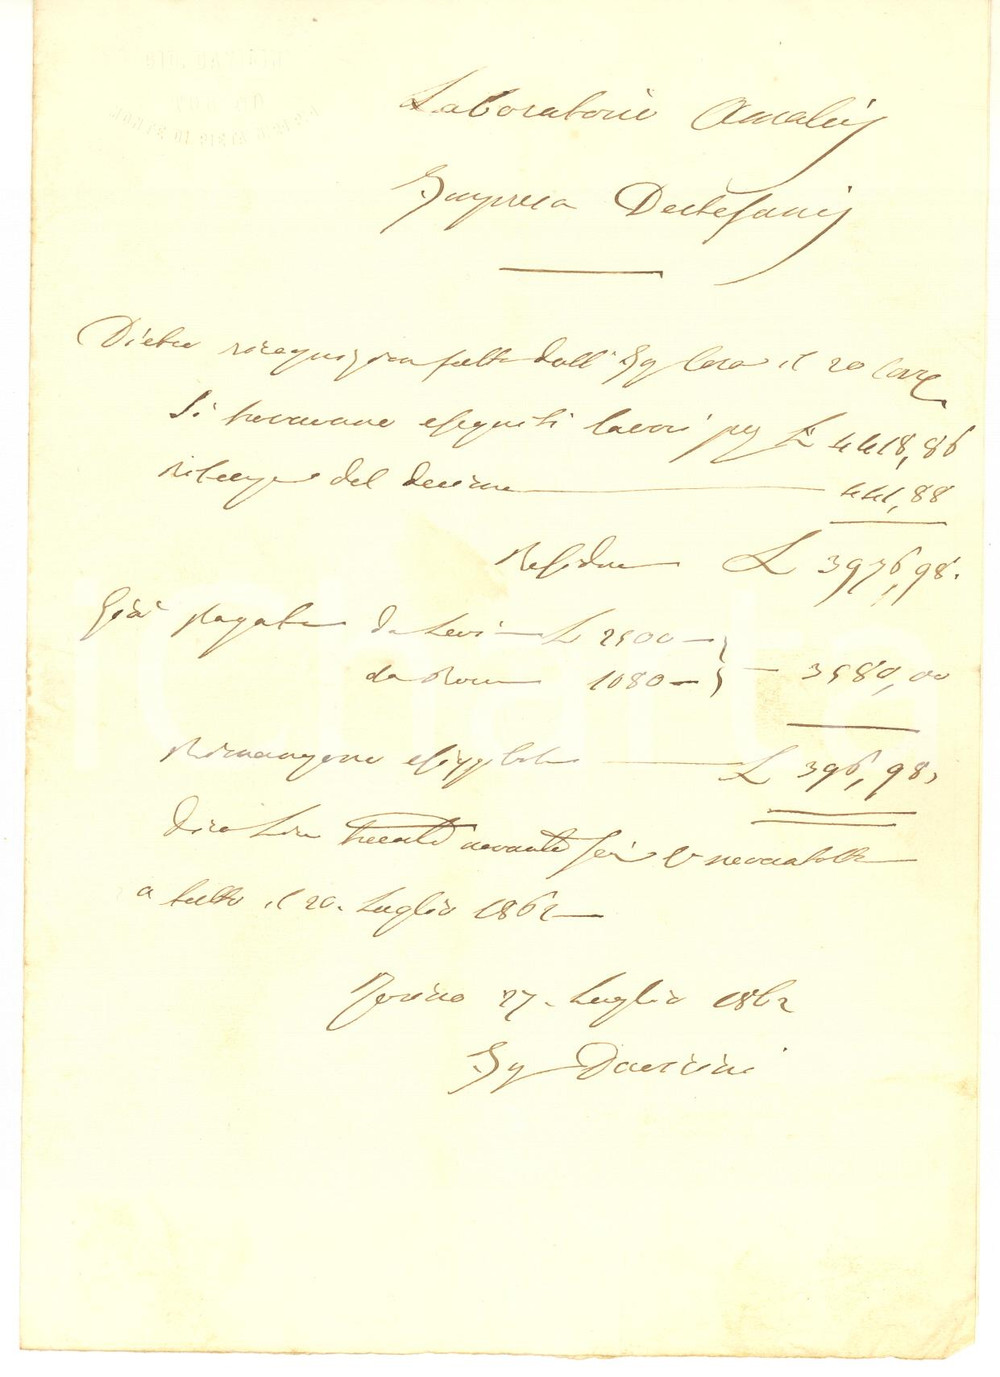 Laboratorio Amalis
Impresa Destefanis
Dietro ricognizione fatta dall' Ing il 20 Corre
Si trovavano eseguiti lavori per L 4418,86
ritenzione del decimo 441,88
Residuo L 3976,98.
Già pagate da Levi L 2500
da 1080 3580,00
Rimangono L 396,98
Dico Lire trecento novantasei e novantotto
a tutto il 20. Luglio 1862
Torino 27. Luglio 1862
Ing